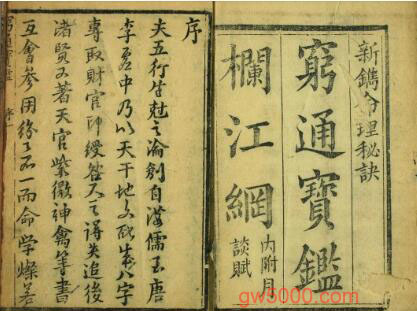 新鐫命理秘訣
窮通寶鑑
欄江網
內附月
談賦
序
夫五行生尅之論剏自漢儒至唐
李虛中乃以天干地支配成八字
專取財官印綬人之得失追後
諸賢又著天官紫微神禽等書
互會參用紛々不一而命學燦若
gw5000.com